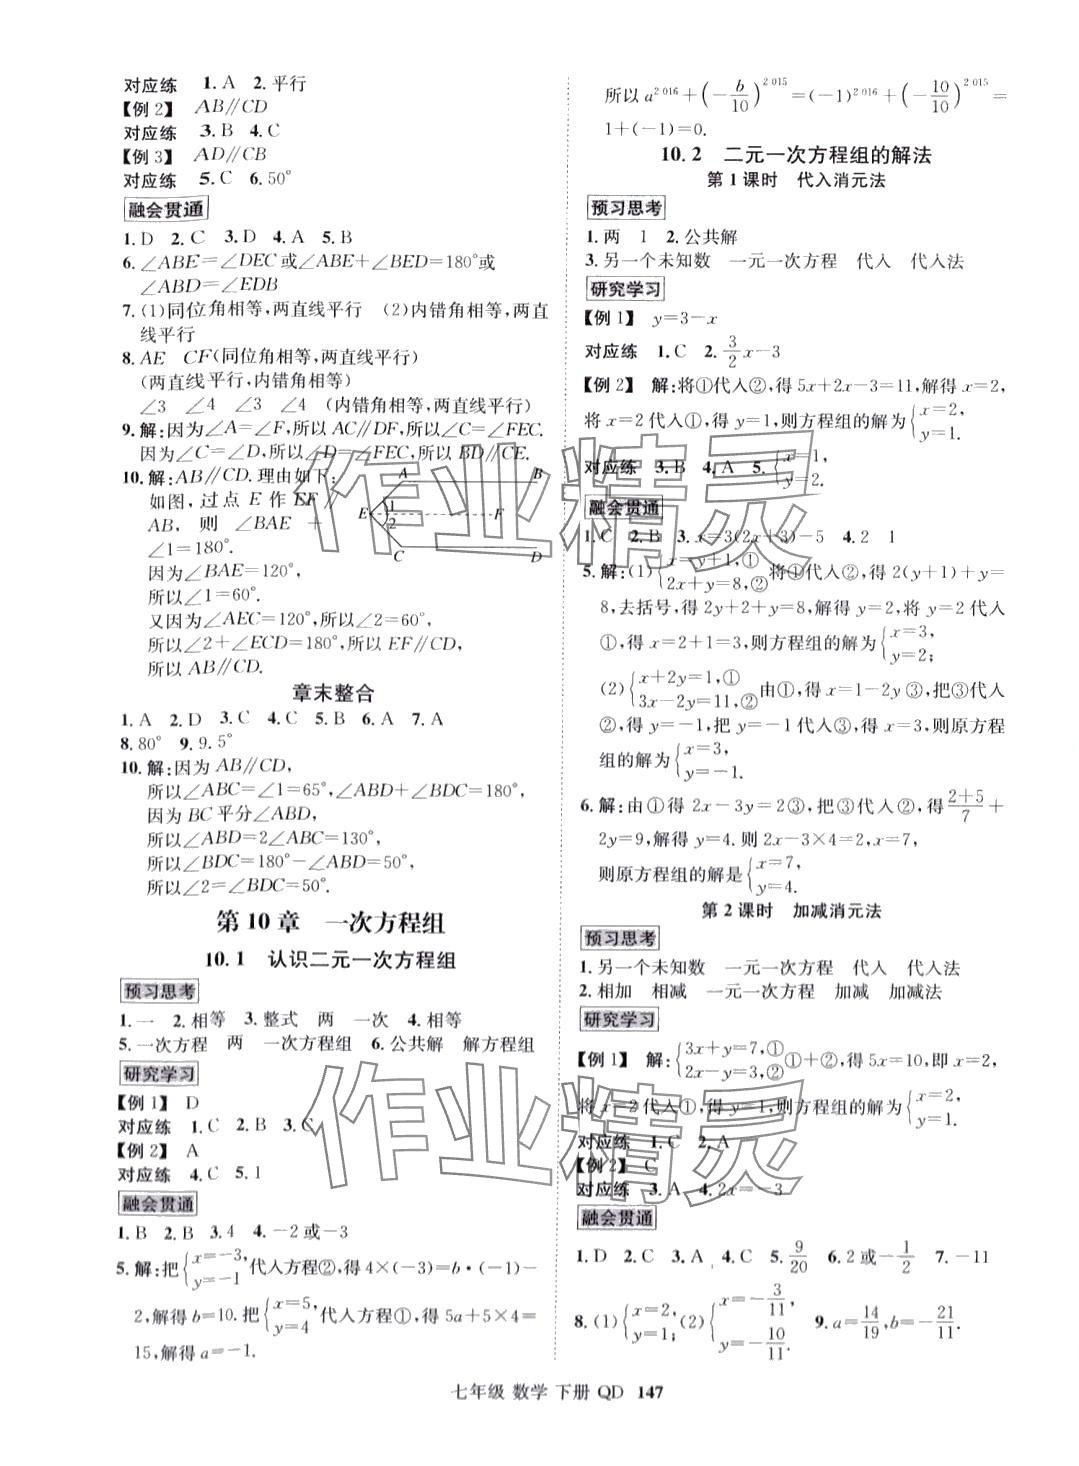 对应练　1. A　2. 平行
【例2】　AB∥CD
对应练　3. B　4. C
【例3】　AD∥CB
对应练　5. C　6. 50°
融会贯通
1. D　2. C　3. D　4. A　5. B
6. ∠ABE=∠DEC或∠ABE+∠BED=180°或
∠ABD=∠EDB
7. (1)同位角相等,两直线平行　(2)内错角相等,两直
线平行
8. AE　CF(同位角相等,两直线平行)
(两直线平行,内错角相等)
∠3　∠4　∠3　∠4　(内错角相等,两直线平行)
9. 解:因为∠A=∠F,所以AC∥DF,所以∠C=∠FEC.
因为∠C=∠D,所以∠D=∠FEC,所以BD∥CE.
10. 解:AB∥CD.理由如下:
如图,过点E作EF∥
AB,则∠BAE+
∠1=180°.
因为∠BAE=120°,
所以∠1=60°.
又因为∠AEC=120°,所以∠2=60°,
所以∠2+∠ECD=180°,所以EF∥CD,
所以AB∥CD.
A B
E 1 2 F
C D
章末整合
1. A　2. D　3. C　4. C　5. B　6. A　7. A
8. 80°　9. 9.5°
10. 解:因为AB∥CD,
所以∠ABC=∠1=65°,∠ABD+∠BDC=180°,
因为BC平分∠ABD,
所以∠ABD=2∠ABC=130°,
所以∠BDC=180°-∠ABD=50°,
所以∠2=∠BDC=50°.
第10章　一次方程组
10.1　认识二元一次方程组
预习思考
1. 一　2. 相等　3. 整式　两　一次　4. 相等
5. 一次方程　两　一次方程组　6. 公共解　解方程组
研究学习
【例1】　D
对应练　1. C　2. B　3. C
【例2】　A
对应练　4. C　5. 1
融会贯通
1. B　2. B　3. 4　4. -2或-3
5. 解:把{x=-3, y=-1代入方程②,得4×(-3)=b·(-1)-
2,解得b=10.把{x=5, y=4代入方程①,得5a+5×4=
15,解得a=-1.
所以a^2016+(-b/10)^2015=(-1)^2016+(-10/10)^2015=
1+(-1)=0.
10.2　二元一次方程组的解法
第1课时　代入消元法
预习思考
1. 两　1　2. 公共解
3. 另一个未知数　一元一次方程　代入　代入法
研究学习
【例1】　y=3-x
对应练　1. C　2. 3/2x-3
【例2】　解:将①代入②,得5x+2x-3=11,解得x=2,
将x=2代入①,得y=1,则方程组的解为{x=2, y=1.
对应练　3. B　4. A　5. {x=1, y=2.
融会贯通
1. C　2. B　3. x=3(2x+3)-5　4. 2　1
5. 解:(1){x=y+1,① 2x+y=8,②将①代入②,得2(y+1)+y=
8,去括号,得2y+2+y=8,解得y=2,将y=2代入
①,得x=2+1=3,则方程组的解为{x=3, y=2;
(2){x+2y=1,① 3x-2y=11,②由①,得x=1-2y③,把③代入
②,得y=-1,把y=-1代入③,得x=3,则原方程
组的解为{x=3, y=-1.
6. 解:由①得2x-3y=2③,把③代入②,得(2+5)/7+
2y=9,解得y=4.则2x-3×4=2,x=7,
则原方程组的解是{x=7, y=4.
第2课时　加减消元法
预习思考
1. 另一个未知数　一元一次方程　代入　代入法
2. 相加　相减　一元一次方程　加减　加减法
研究学习
【例1】　解:{3x+y=7,① 2x-y=3,②①+②,得5x=10,即x=2,
将x=2代入①,得y=1,则方程组的解为{x=2, y=1.
对应练　1. C　2. A
【例2】　C
对应练　3. A　4. 2x=-3
融会贯通
1. D　2. C　3. A　4. C　5. 9/20　6. 2或-1/2　7. -11
8. (1){x=2, y=1; (2){x=-3/11, y=-10/11.　9. a=14/19,b=-21/11.
七年级 数学 下册 QD　147
作业精灵
作业精灵